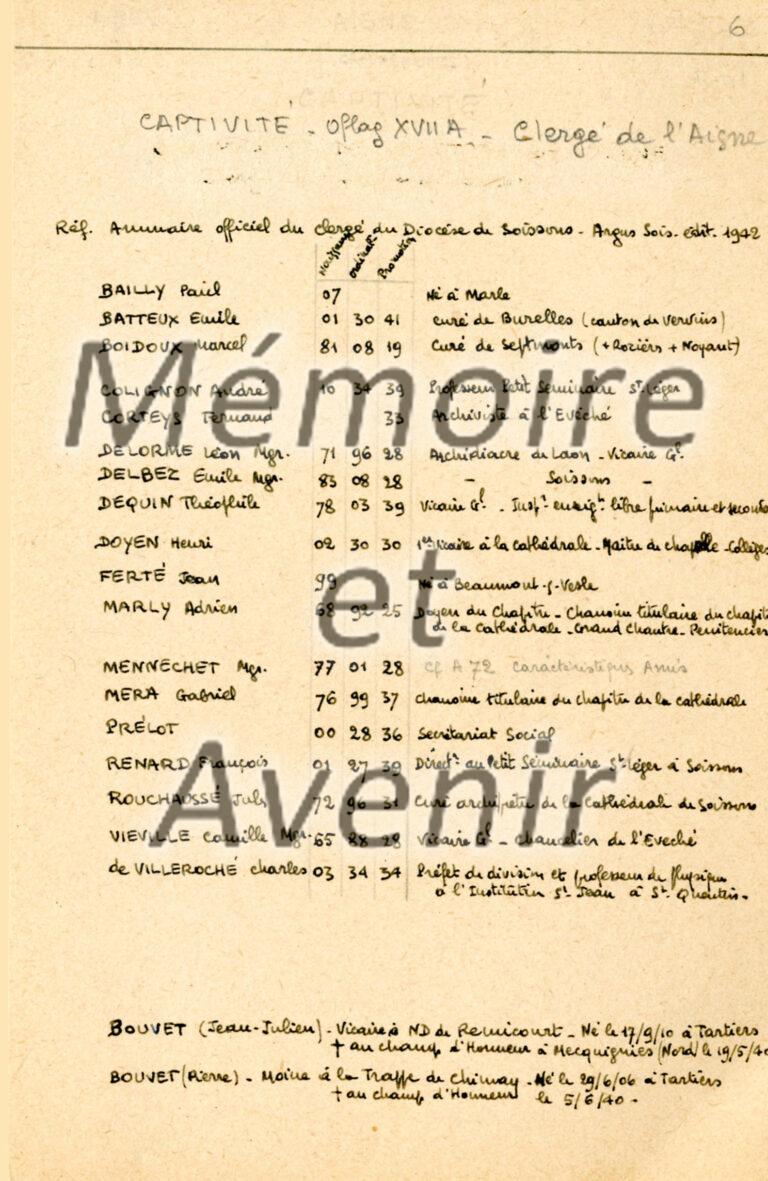 6
CAPTIVITÉ - Oflag XVII A - Clergé de l'Aisne
Réf. Annuaire officiel du Clergé du Diocèse de Soissons - Argus Sois. édit. 1942
Naissance Ordinat. Promotion
BAILLY Paul 07 Né à Marle
BATTEUX Emile 01 30 41 curé de Burelles (canton de Vervins)
BOIDOUX Marcel 81 08 19 Curé de Septmonts (+ Roziers + Noyant)
COLIGNON André 10 34 39 Professeur Petit Séminaire St Léger
CORTEYS Fernand 33 Archiviste à l'Evêché
DELORME Léon Mgr. 71 96 28 Archidiacre de Laon - Vicaire Gl.
DELBEZ Emile Mgr. 83 08 28 - Soissons -
DEQUIN Théophile 78 03 39 Vicaire Gl. - Inspr enseigt libre primaire et
DOYEN Henri 02 30 30 1er Vicaire à la cathédrale - Maître de chapelle - Collèges
FERTÉ Jean 99 Né à Beaumont-s-Vesle
MARLY Adrien 68 92 25 Doyen du Chapitre - Chanoine titulaire du
de la Cathédrale - Grand Chantre - Pénitencier
MENNECHET Mgr. 77 01 28 cf A 72 Caractéristiques Amis
MERA Gabriel 76 99 37 chanoine titulaire du chapitre de la cathédrale
PRÉLOT 00 28 36 Secrétariat Social
RENARD François 01 27 39 Directr au Petit Séminaire St Léger à Soissons
ROUCHAUSSÉ Jules 72 96 31 Curé archiprêtre de la Cathédrale de Soissons
VIEVILLE Camille Mgr. 65 88 28 Vicaire Gl - Chancelier de l'Evêché
de VILLEROCHÉ Charles 03 34 34 Préfet de division et professeur de Physique
à l'Institution St Jean à St Quentin -
BOUVET (Jean-Julien) - Vicaire à ND de Remicourt - Né le 17/9/10 à Tartiers
† au champ d'Honneur à Mecquignies (Nord) le 19/5/40
BOUVET (Pierre) - Moine à la Trappe de Chimay - Né le 29/6/06 à Tartiers
† au champ d'Honneur le 5/6/40 -
Mémoire
et
Avenir